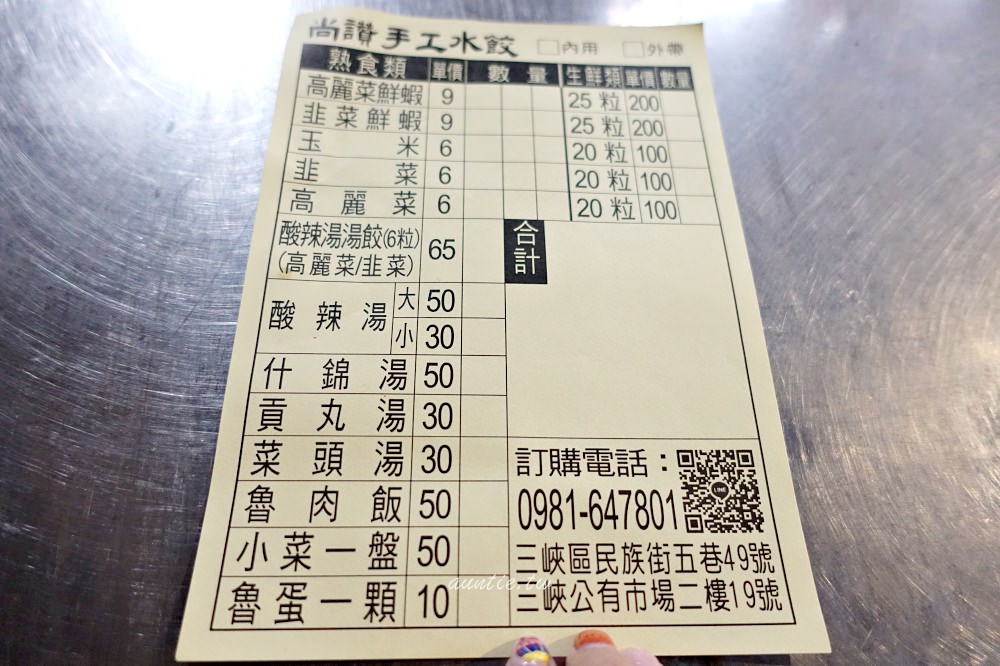 尚讚手工水餃 □內用 □外帶
熟食類 單價 數量 生鮮類 單價 數量
高麗菜鮮蝦 9 25 粒 200
韭菜鮮蝦 9 25 粒 200
玉米 6 20 粒 100
韭菜 6 20 粒 100
高麗菜 6 20 粒 100
酸辣湯湯餃(6粒)
(高麗菜/韭菜) 65
合計
酸辣湯 大 50
小 30
什錦湯 50
貢丸湯 30
菜頭湯 30
魯肉飯 50
小菜一盤 50
魯蛋一顆 10
訂購電話：
0981-647801
LINE
三峽區民族街五巷49號
三峽公有市場二樓19號
auntie.tw